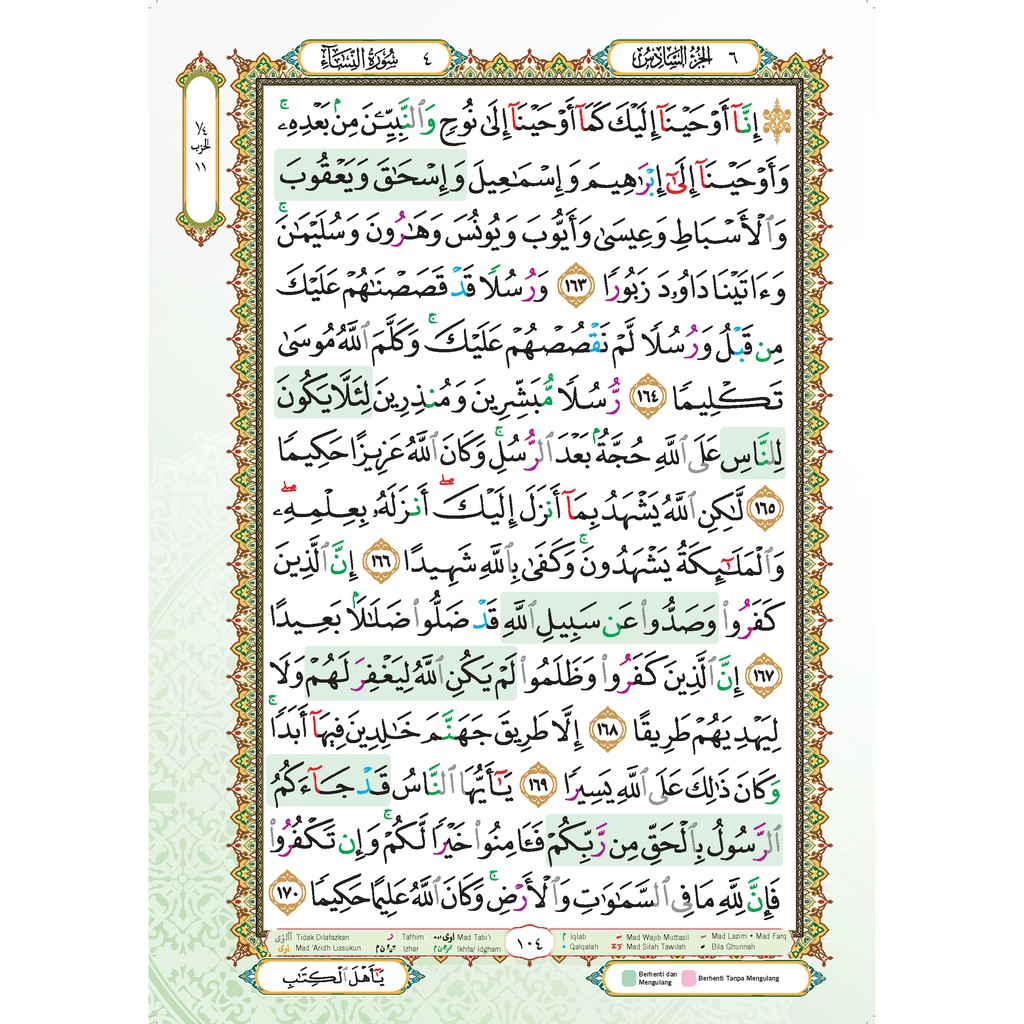 ٦ الجزء السادس
٤ سورة النساء
١/٤
الحزب
١١
۞ إِنَّآ أَوْحَيْنَآ إِلَيْكَ كَمَآ أَوْحَيْنَآ إِلَىٰ نُوحٍ وَٱلنَّبِيِّـۧنَ مِنۢ بَعْدِهِۦ ۚ
وَأَوْحَيْنَآ إِلَىٰٓ إِبْرَٰهِيمَ وَإِسْمَـٰعِيلَ وَإِسْحَـٰقَ وَيَعْقُوبَ
وَٱلْأَسْبَاطِ وَعِيسَىٰ وَأَيُّوبَ وَيُونُسَ وَهَـٰرُونَ وَسُلَيْمَـٰنَ ۚ
وَءَاتَيْنَا دَاوُۥدَ زَبُورًا ١٦٣ وَرُسُلًا قَدْ قَصَصْنَـٰهُمْ عَلَيْكَ
مِن قَبْلُ وَرُسُلًا لَّمْ نَقْصُصْهُمْ عَلَيْكَ ۚ وَكَلَّمَ ٱللَّهُ مُوسَىٰ
تَكْلِيمًا ١٦٤ رُّسُلًا مُّبَشِّرِينَ وَمُنذِرِينَ لِئَلَّا يَكُونَ
لِلنَّاسِ عَلَى ٱللَّهِ حُجَّةٌۢ بَعْدَ ٱلرُّسُلِ ۚ وَكَانَ ٱللَّهُ عَزِيزًا حَكِيمًا
١٦٥ لَّـٰكِنِ ٱللَّهُ يَشْهَدُ بِمَآ أَنزَلَ إِلَيْكَ ۖ أَنزَلَهُۥ بِعِلْمِهِۦ ۖ
وَٱلْمَلَـٰٓئِكَةُ يَشْهَدُونَ ۚ وَكَفَىٰ بِٱللَّهِ شَهِيدًا ١٦٦ إِنَّ ٱلَّذِينَ
كَفَرُوا۟ وَصَدُّوا۟ عَن سَبِيلِ ٱللَّهِ قَدْ ضَلُّوا۟ ضَلَـٰلًۢا بَعِيدًا
١٦٧ إِنَّ ٱلَّذِينَ كَفَرُوا۟ وَظَلَمُوا۟ لَمْ يَكُنِ ٱللَّهُ لِيَغْفِرَ لَهُمْ وَلَا
لِيَهْدِيَهُمْ طَرِيقًا ١٦٨ إِلَّا طَرِيقَ جَهَنَّمَ خَـٰلِدِينَ فِيهَآ أَبَدًا ۚ
وَكَانَ ذَٰلِكَ عَلَى ٱللَّهِ يَسِيرًا ١٦٩ يَـٰٓأَيُّهَا ٱلنَّاسُ قَدْ جَآءَكُمُ
ٱلرَّسُولُ بِٱلْحَقِّ مِن رَّبِّكُمْ فَـَٔامِنُوا۟ خَيْرًا لَّكُمْ ۚ وَإِن تَكْفُرُوا۟
فَإِنَّ لِلَّهِ مَا فِى ٱلسَّمَـٰوَٰتِ وَٱلْأَرْضِ ۚ وَكَانَ ٱللَّهُ عَلِيمًا حَكِيمًا ١٧٠
Tidak Dilafazkan Tafhim Mad Tabi'i Iqlab Mad Wajib Muttasil Mad Lazim • Mad Farq
Mad 'Aridh Lissukun Izhar Ikhfa/ Idgham Qalqalah Mad Silah Tawilah Bila Ghunnah
١٠٤
يَـٰٓأَهْلَ ٱلْكِتَـٰبِ
Berhenti dan Mengulang
Berhenti Tanpa Mengulang